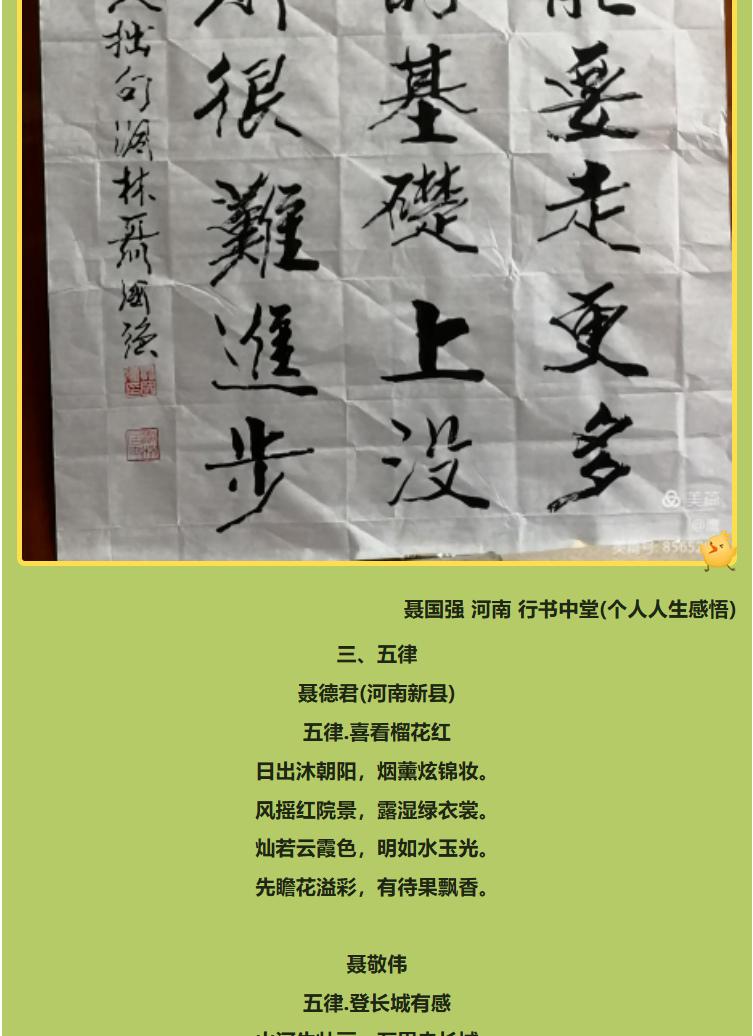 要走更多
基礎上没
很難進步
拙句
林聶國强
美篇
聂国强 河南 行书中堂(个人人生感悟)
三、五律
聂德君(河南新县)
五律.喜看榴花红
日出沐朝阳，烟薰炫锦妆。
风摇红院景，露湿绿衣裳。
灿若云霞色，明如水玉光。
先瞻花溢彩，有待果飘香。
聂敬伟
五律.登长城有感